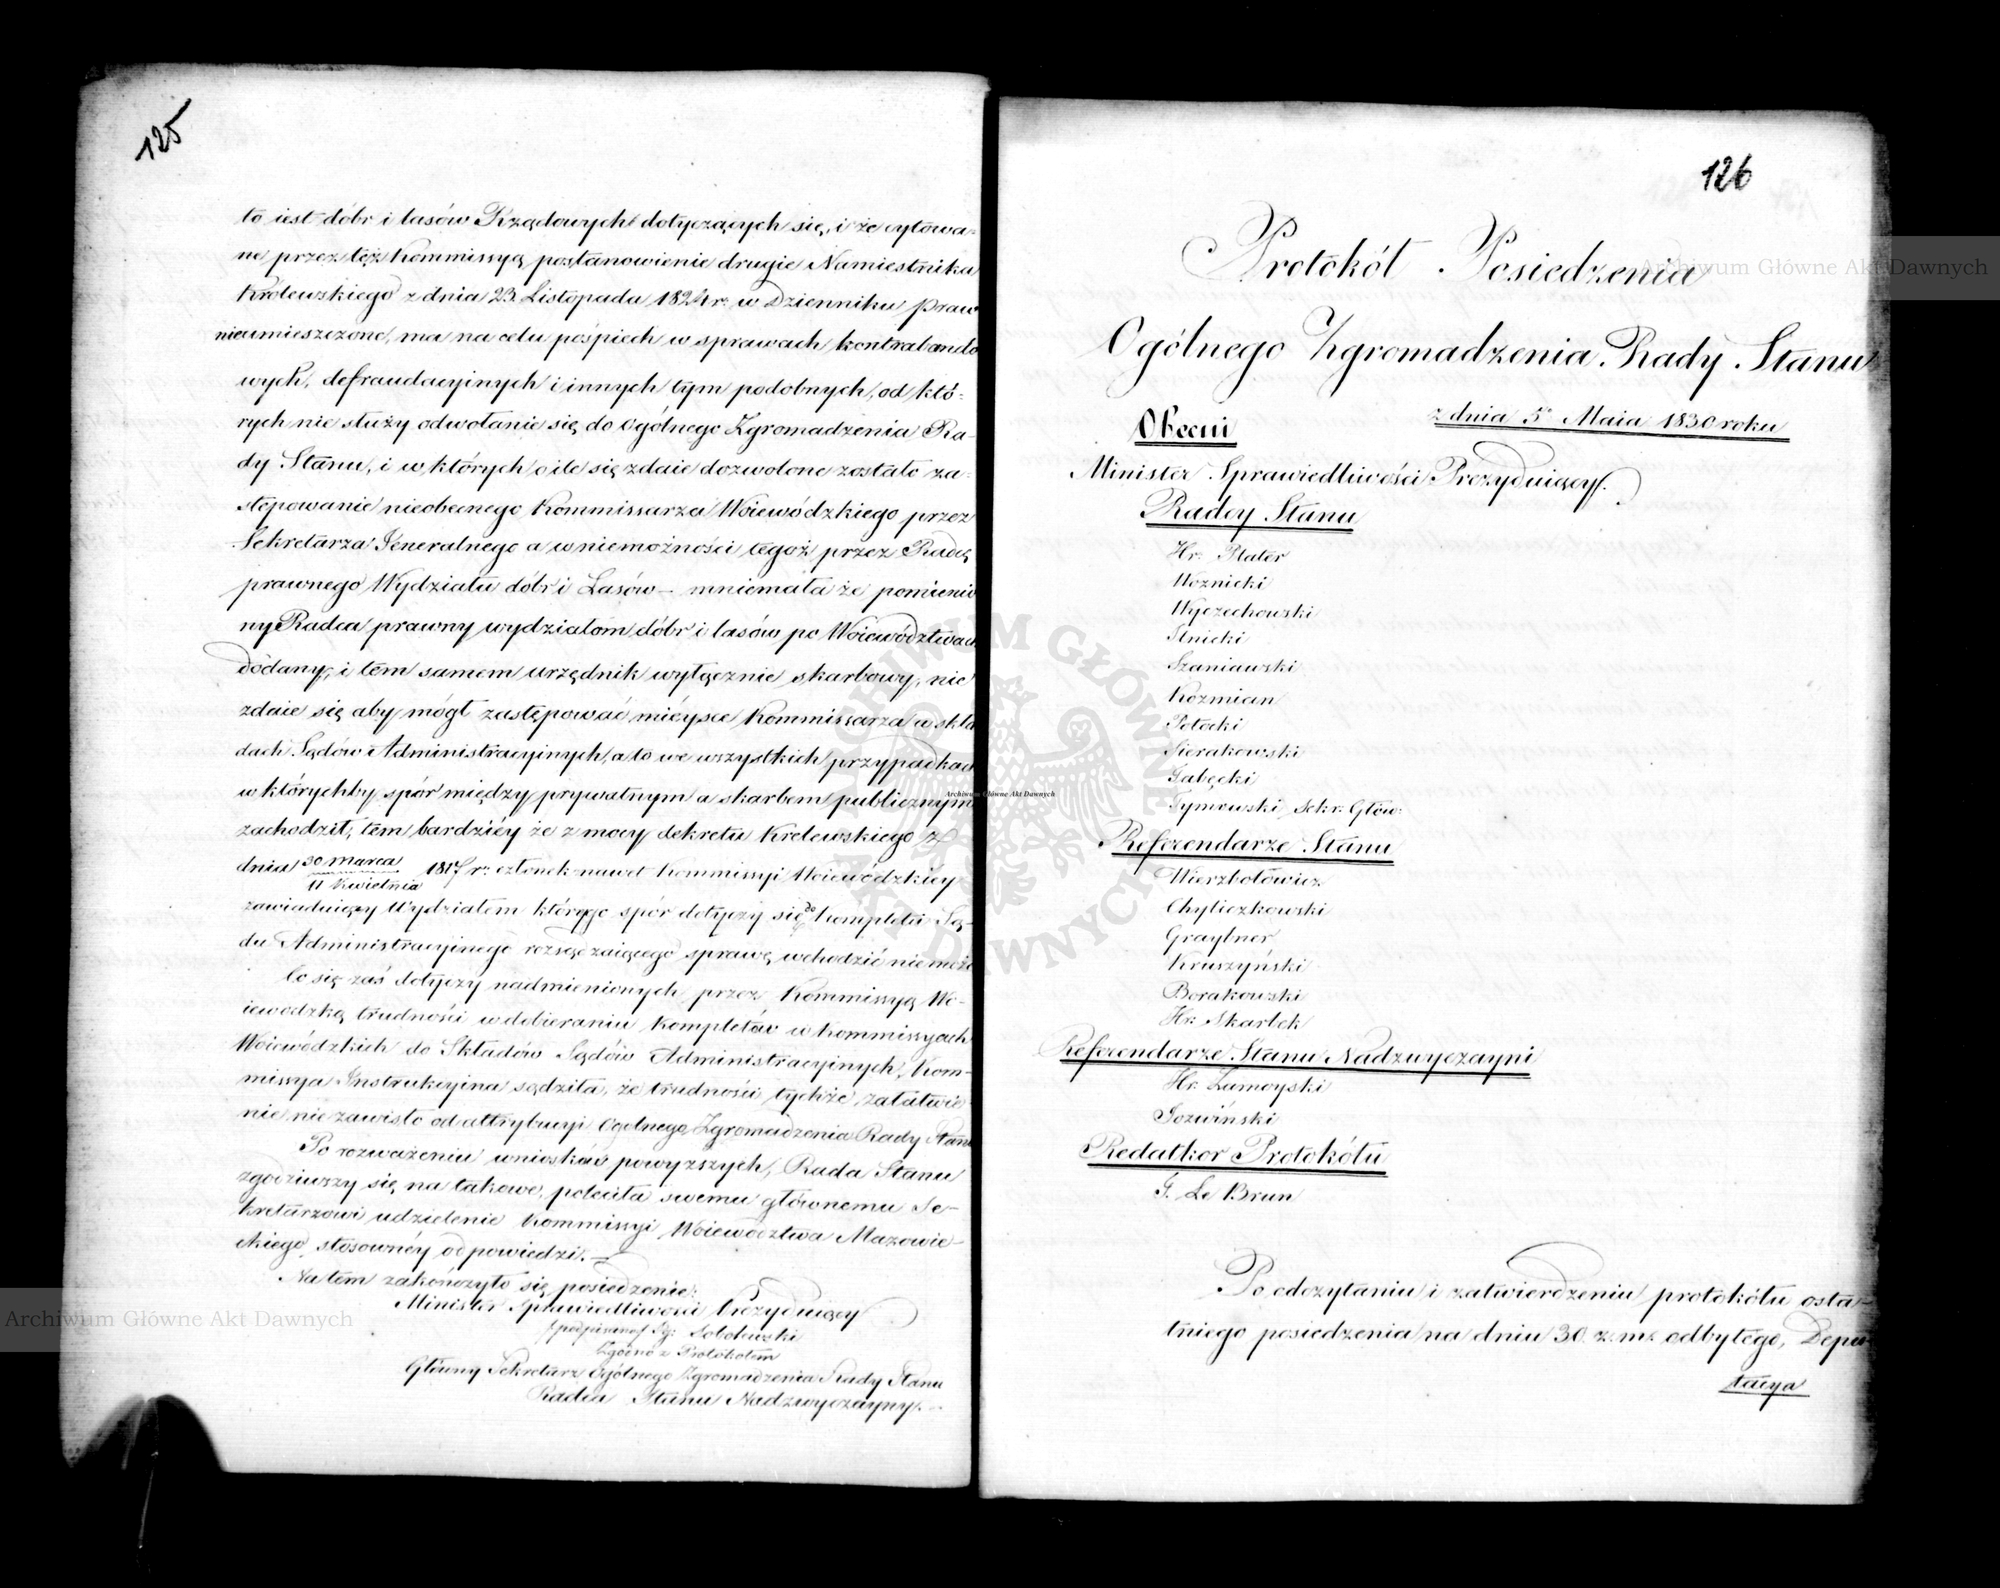 125
to iest dóbr i lasów Rządowych dotyczących się, i że cytowa-
ne przez też Kommissyą postanowienie drugie Namiestnika
Królewskiego z dnia 23 Listopada 1824 r. w Dzienniku praw
nieumieszczone, ma na celu pośpiech w sprawach kontrabando
wych, defraudacyinych i innych tym podobnych, od któ-
rych nie służy odwołanie się do Ogólnego Zgromadzenia Ra-
dy Stanu, i w których o ile się zdaie dozwolone zostało za-
stępowanie nieobecnego Kommissarza Woiewódzkiego przez
Sekretarza Jeneralnego a w niemożności tegoż przez Radcę
prawnego Wydziału dóbr i Lasów – mniemała że pomienio
ny Radca prawny wydziałom dóbr i lasów po Woiewództwach
dodany, i tem samem urzędnik wyłącznie skarbowy, nie
zdaie się aby mógł zastępować mieysce Kommissarza w skła
dach Sądów Administracyinych, a to we wszystkich przypadkach
w którychby spór między prywatnym a skarbem publicznym
zachodził, tem bardziey że z mocy dekretu Królewskiego z
dnia 30 Marca / 11 Kwietnia 1817 r. członek nawet Kommissyi Woiewódzkiéy
zawiaduiący Wydziałem którego spór dotyczy się do kompletu Są-
du Administracyinego rozsądzaiącego sprawę wchodzić nie może
Co się zaś dotyczy nadmienionych przez Kommissyą Wo-
iewódzką trudności w dobieraniu kompletów w Kommissyach
Woiewódzkich do Składów Sądów Administracyinych, Kom-
missya Instrukcyina sądziła, że trudności tychże załatwie-
nie nie zawisło od attrybucyi Ogólnego Zgromadzenia Rady Stanu
Po rozważeniu wniosków powyższych, Rada Stanu
zgodziwszy się na takowe, poleciła swemu głównemu Se-
kretarzowi udzielenie Kommissyi Woiewództwa Mazowie-
ckiego, stosownéy odpowiedzi.
Na tem zakończyło się posiedzenie.
Minister Sprawiedliwości Prezyduiący
/podpisano/ Ig: Sobolewski
Zgodno z Protokołem
Główny Sekretarz Ogólnego Zgromadzenia Rady Stanu
Radca Stanu Nadzwyczayny.
126
Protokół Posiedzenia
Ogólnego Zgromadzenia Rady Stanu
z dnia 5o Maia 1830 roku
Obecni
Minister Sprawiedliwości Prezyduiący.
Radcy Stanu
Hr. Plater
Woznicki
Wyczechowski
Ilnicki
Szaniawski
Kozmian
Potocki
Sierakowski
Gąbęcki
Tymowski, Sekr. Głów:
Referendarze Stanu
Wierzbołowicz
Chyliczkowski
Graybner
Kruszyński
Borakowski
Hr. Skarbek
Referendarze Stanu Nadzwyczayni
Hr. Zamoyski
Jozwiński
Redaktor Protokółu
J. Le Brun
Po odczytaniu i zatwierdzeniu protokółu osta-
tniego posiedzenia na dniu 30 z. m. odbytego, Depu-
tacya
Archiwum Główne Akt Dawnych
ARCHIWUM GŁÓWNE AKT DAWNYCH
Archiwum Główne Akt Dawnych
Archiwum Główne Akt Dawnych